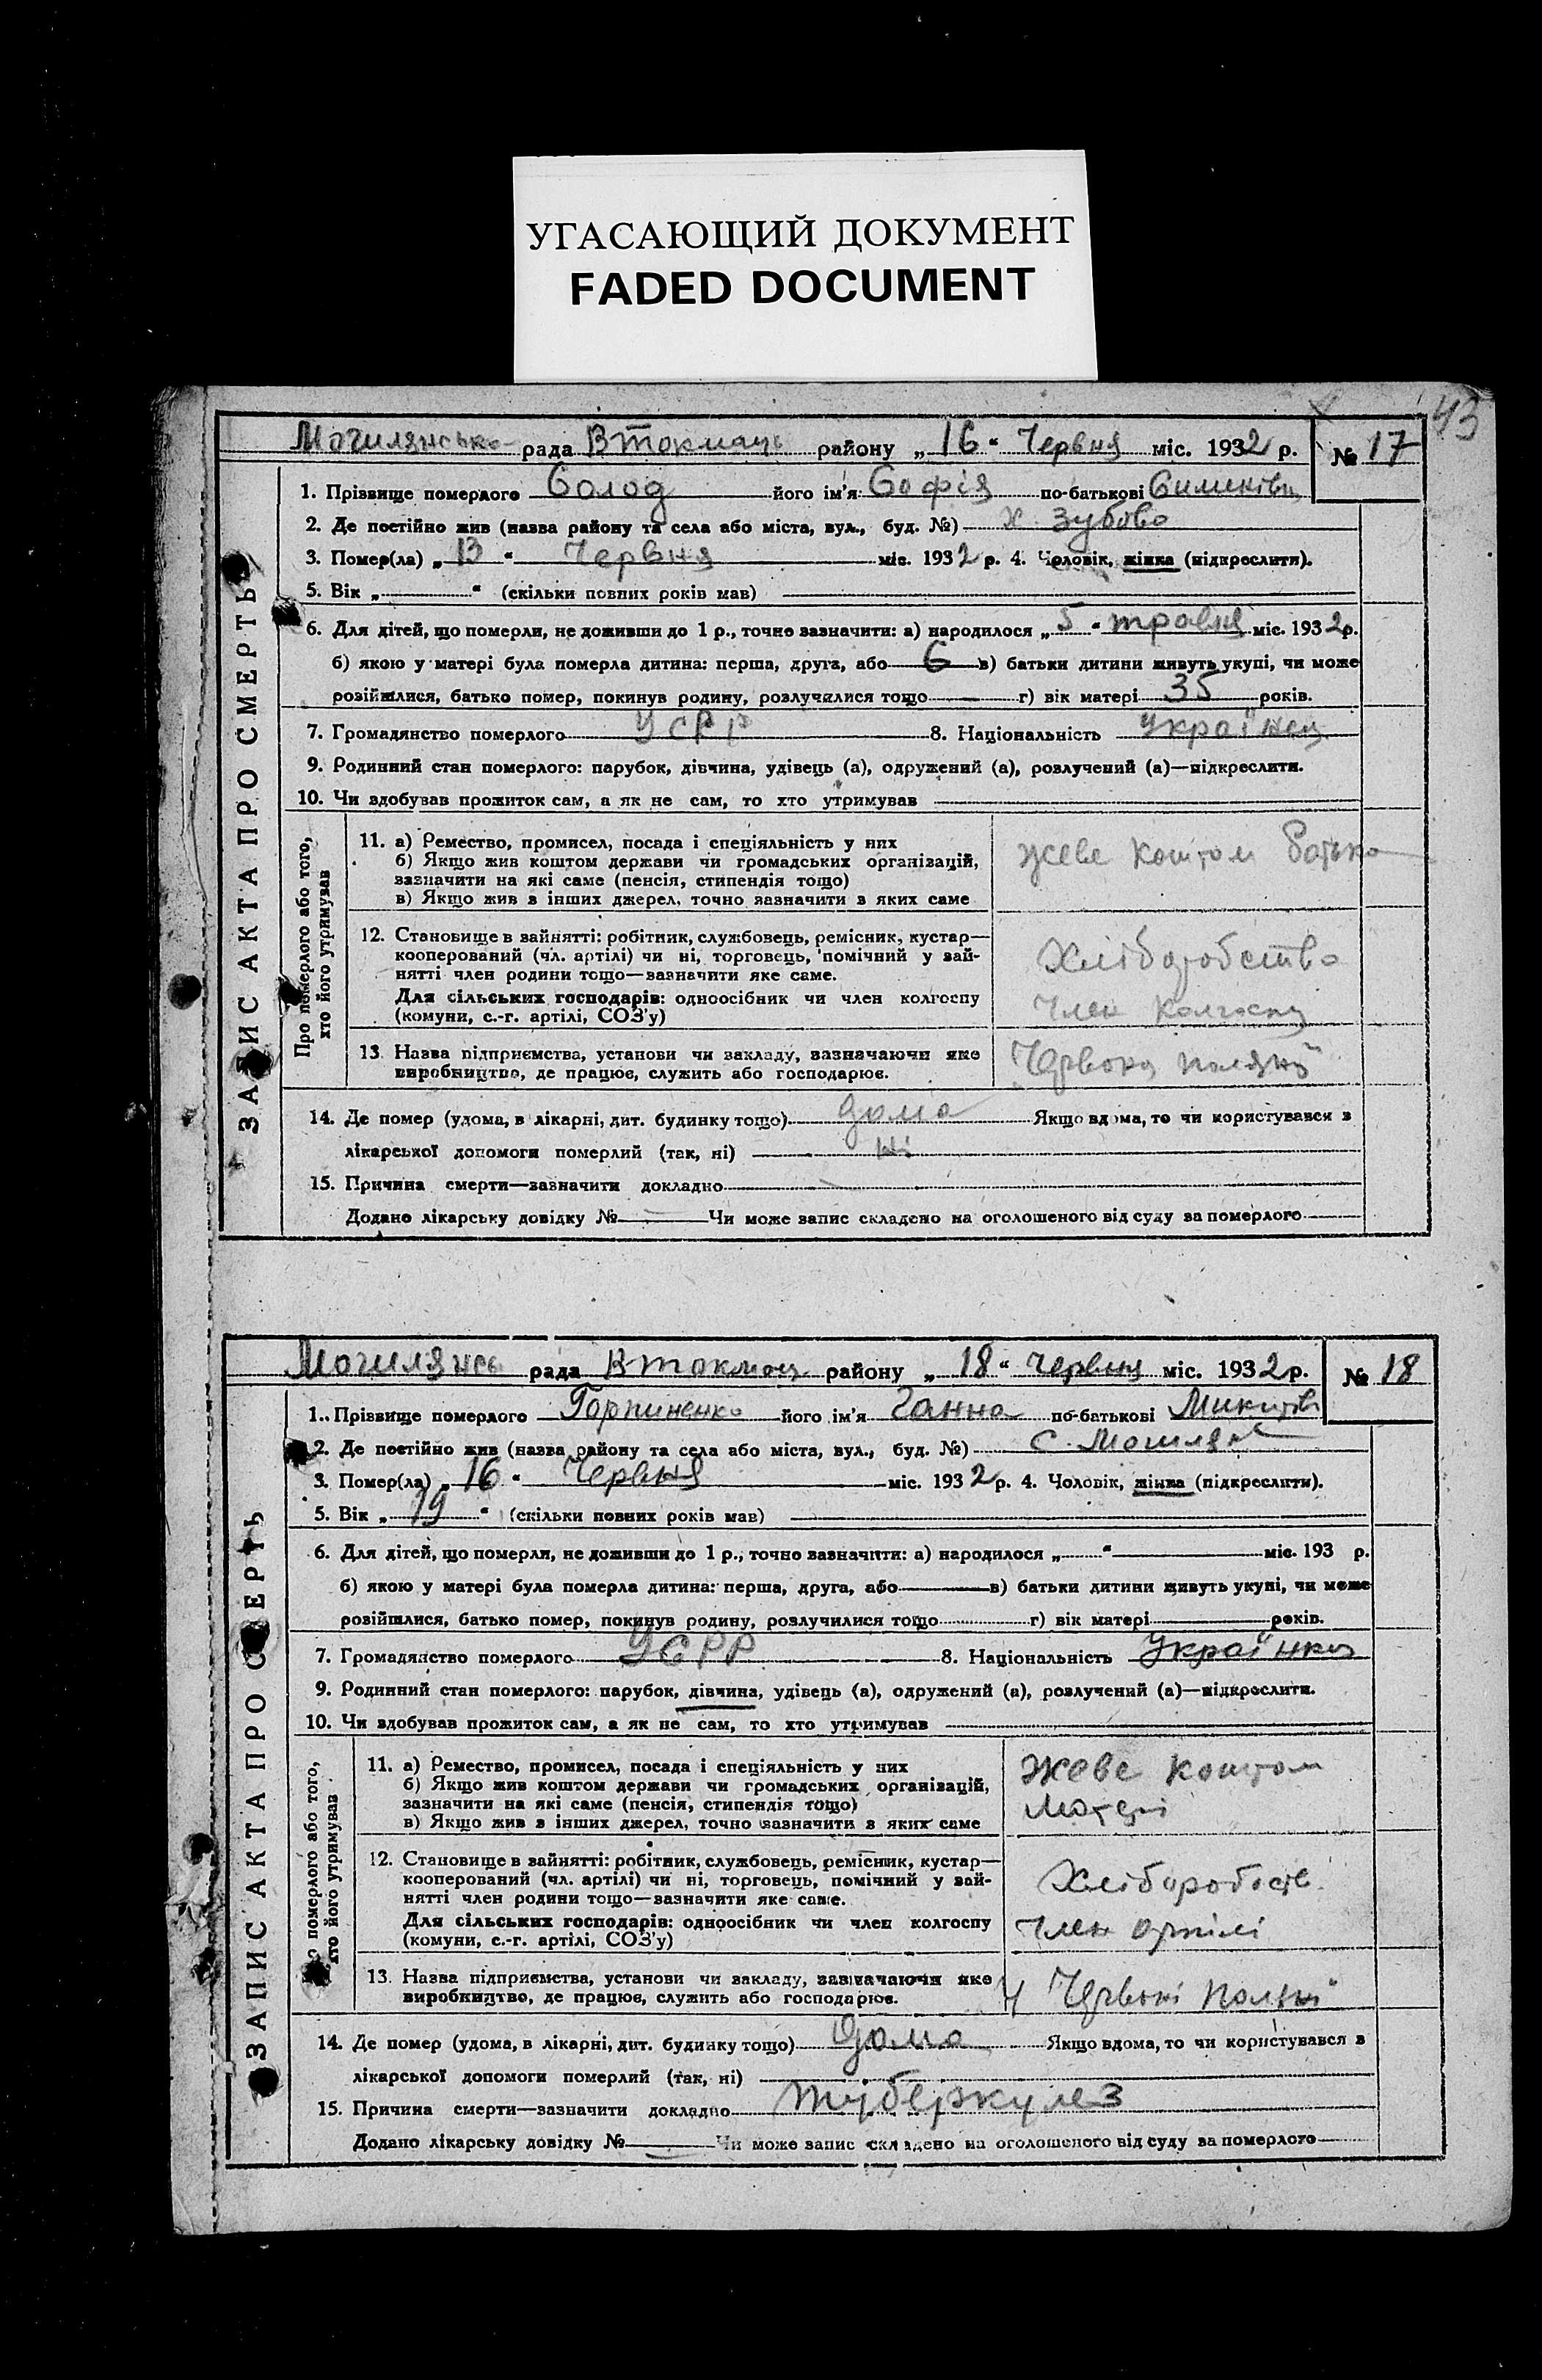 УГАСАЮЩИЙ ДОКУМЕНТ
FADED DOCUMENT
43
Могилянсько рада В Токмаць району „16“ Червня міс. 1932 р. № 17
1. Прізвище померлого Солод його ім'я Софія по-батькові
2. Де постійно жив (назва району та села або міста, вул., буд. №) х Зубово
3. Помер(ла) „13“ Червня міс. 1932 р. 4. Чоловік, жінка (підкреслити).
5. Вік „ “ (скільки повних років мав)
6. Для дітей, що померли, не доживши до 1 р., точно зазначити: а) народилося „5“ травня міс. 1932 р.
б) якою у матері була померла дитина: перша, друга, або 6 в) батьки дитини живуть укупі, чи може
розійшлися, батько помер, покинув родину, розлучилися тощо г) вік матері 35 років.
7. Громадянство померлого УСРР 8. Національність Українец
9. Родинний стан померлого: парубок, дівчина, удівець (а), одружений (а), розлучений (а)—підкреслити.
10. Чи здобував прожиток сам, а як не сам, то хто утримував
ЗАПИС АКТА ПРО СМЕРТЬ
Про померлого або того,
хто його утримував
11. а) Ремество, промисел, посада і спеціяльність у них
б) Якщо жив коштом держави чи громадських організацій,
зазначити на які саме (пенсія, стипендія тощо)
в) Якщо жив з інших джерел, точно зазначити з яких саме
жеве коштом батька
12. Становище в зайнятті: робітник, службовець, ремісник, кустар—
кооперований (чл. артілі) чи ні, торговець, помічний у зай-
нятті член родини тощо—зазначити яке саме.
Для сільських господарів: одноосібник чи член колгоспу
(комуни, с.-г. артілі, СОЗ'у)
Хліборобство
Член колгоспу
13. Назва підприємства, установи чи закладу, зазначаючи яке
виробництво, де працює, служить або господарює.
14. Де помер (удома, в лікарні, дит. будинку тощо) дома Якщо вдома, то чи користувався з
лікарської допомоги померлий (так, ні) ні
15. Причина смерти—зазначити докладно
Додано лікарську довідку № Чи може запис складено на оголошеного від суду за померлого
Могилянсь рада В Токмац району „18“ Червня міс. 1932 р. № 18
1. Прізвище померлого Горпиненко його ім'я Ганна по-батькові Микитів
2. Де постійно жив (назва району та села або міста, вул., буд. №) с.
3. Помер(ла) „16“ Червня міс. 1932 р. 4. Чоловік, жінка (підкреслити).
5. Вік „19“ (скільки повних років мав)
6. Для дітей, що померли, не доживши до 1 р., точно зазначити: а) народилося „ “ міс. 193 р.
б) якою у матері була померла дитина: перша, друга, або в) батьки дитини живуть укупі, чи може
розійшлися, батько помер, покинув родину, розлучилися тощо г) вік матері років.
7. Громадянство померлого УСРР 8. Національність Українка
9. Родинний стан померлого: парубок, дівчина, удівець (а), одружений (а), розлучений (а)—підкреслити.
10. Чи здобував прожиток сам, а як не сам, то хто утримував
ЗАПИС АКТА ПРО СМЕРТЬ
Про померлого або того,
хто його утримував
11. а) Ремество, промисел, посада і спеціяльність у них
б) Якщо жив коштом держави чи громадських організацій,
зазначити на які саме (пенсія, стипендія тощо)
в) Якщо жив з інших джерел, точно зазначити з яких саме
жеве коштом
матері
12. Становище в зайнятті: робітник, службовець, ремісник, кустар—
кооперований (чл. артілі) чи ні, торговець, помічний у зай-
нятті член родини тощо—зазначити яке саме.
Для сільських господарів: одноосібник чи член колгоспу
(комуни, с.-г. артілі, СОЗ'у)
Хліборобств
Член артілі
13. Назва підприємства, установи чи закладу, зазначаючи яке
виробництво, де працює, служить або господарює.
14. Де помер (удома, в лікарні, дит. будинку тощо) дома Якщо вдома, то чи користувався з
лікарської допомоги померлий (так, ні)
15. Причина смерти—зазначити докладно туберкулез
Додано лікарську довідку № Чи може запис складено на оголошеного від суду за померлого